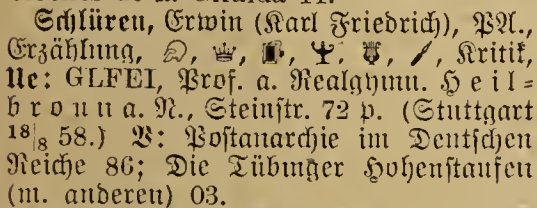 Schlüren, Erwin (Karl Friedrich), PA.,
Erzählung, Kritik,
Ue: GLFEI, Prof. a. Realgymn. Heil=
bronn a. N., Steinstr. 72 p. (Stuttgart
18|8 58.) V: Postanarchie im Deutschen
Reiche 86; Die Tübinger Hohenstaufen
(m. anderen) 03.